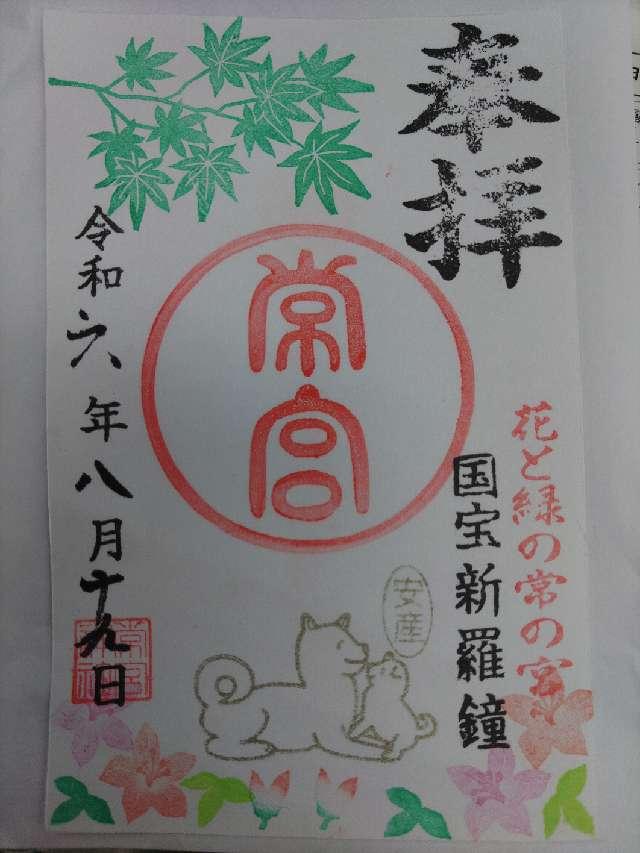 奉拝
花と緑の常の宮
国宝新羅鐘
常宮
安産
令和六年八月十九日